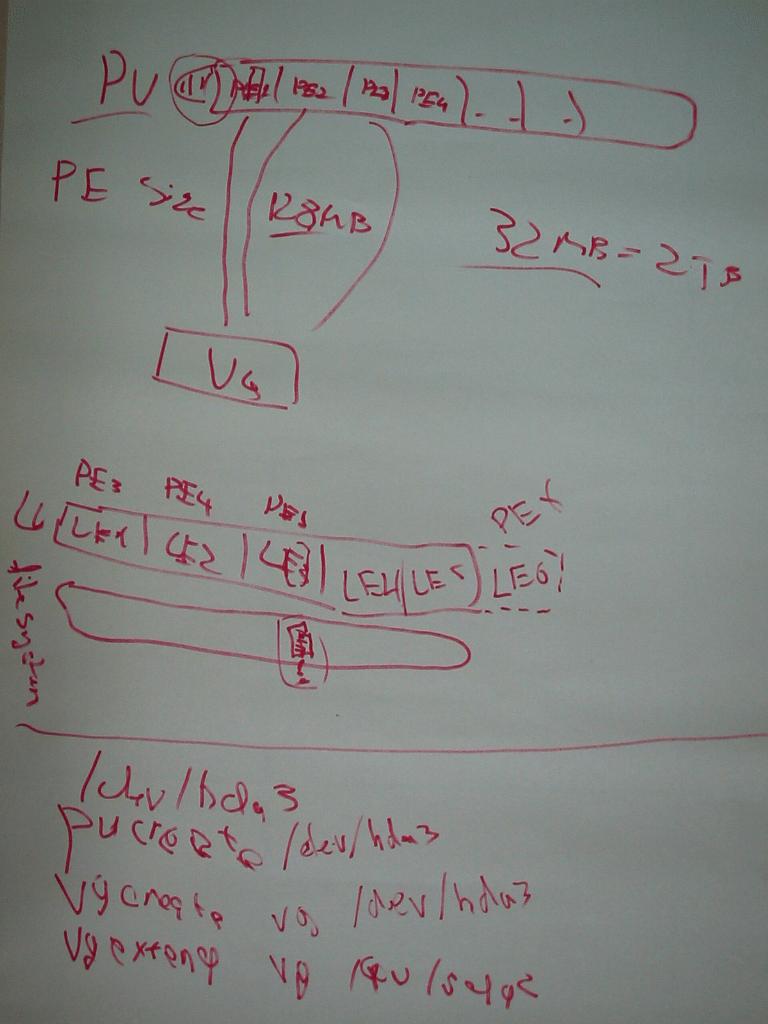 PV PE1 PE2 PE3 PE4 - - -
PE Size 128MB 32MB = 2TB
VG
PE3 PE4 PE1 PE
L LE1 LE2 LE3 LE4 LE5 LE6
filesystem
/dev/hda3
pvcreate /dev/hda3
vgcreate vg /dev/hda3
vgextend vg /dev/sda2